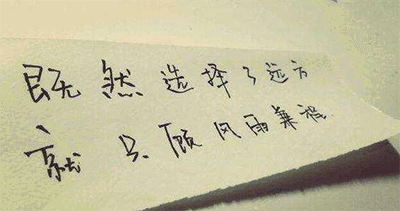 既然选择了远方
就只顾风雨兼程